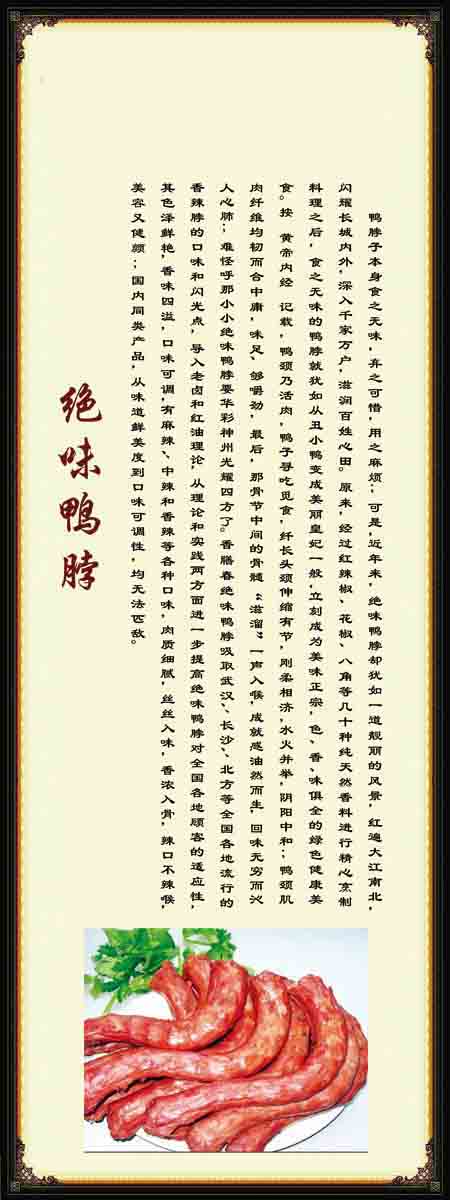 鸭脖子本身食之无味，弃之可惜，用之麻烦；可是，近年来，绝味鸭脖却犹如一道靓丽的风景，红遍大江南北，
闪耀长城内外，深入千家万户，滋润百姓心田。原来，经过红辣椒、花椒、八角等几十种纯天然香料进行精心烹制
料理之后，食之无味的鸭脖就犹如从丑小鸭变成美丽皇妃一般，立刻成为美味正宗，色、香、味俱全的绿色健康美
食。按 黄帝内经 记载，鸭颈乃活肉，鸭子寻吃觅食，纤长头颈伸缩有节，刚柔相济，水火并举，阴阳中和；鸭颈肌
肉纤维均韧而合中庸，味足、够嚼劲，最后，那骨节中间的骨髓“滋溜”一声入喉，成就感油然而生，回味无穷而沁
人心肺；难怪呼那小小绝味鸭脖要华彩神州光耀四方了。香膳春绝味鸭脖吸取武汉、长沙、北方等全国各地流行的
香辣脖的口味和闪光点，导入老卤和红油理论，从理论和实践两方面进一步提高绝味鸭脖对全国各地顾客的适应性，
其色泽鲜艳，香味四溢，口味可调，有麻辣、中辣和香辣等各种口味，肉质细腻，丝丝入味，香浓入骨，辣口不辣喉，
美容又健颜；国内同类产品，从味道鲜美度到口味可调性，均无法匹敌。
绝味鸭脖